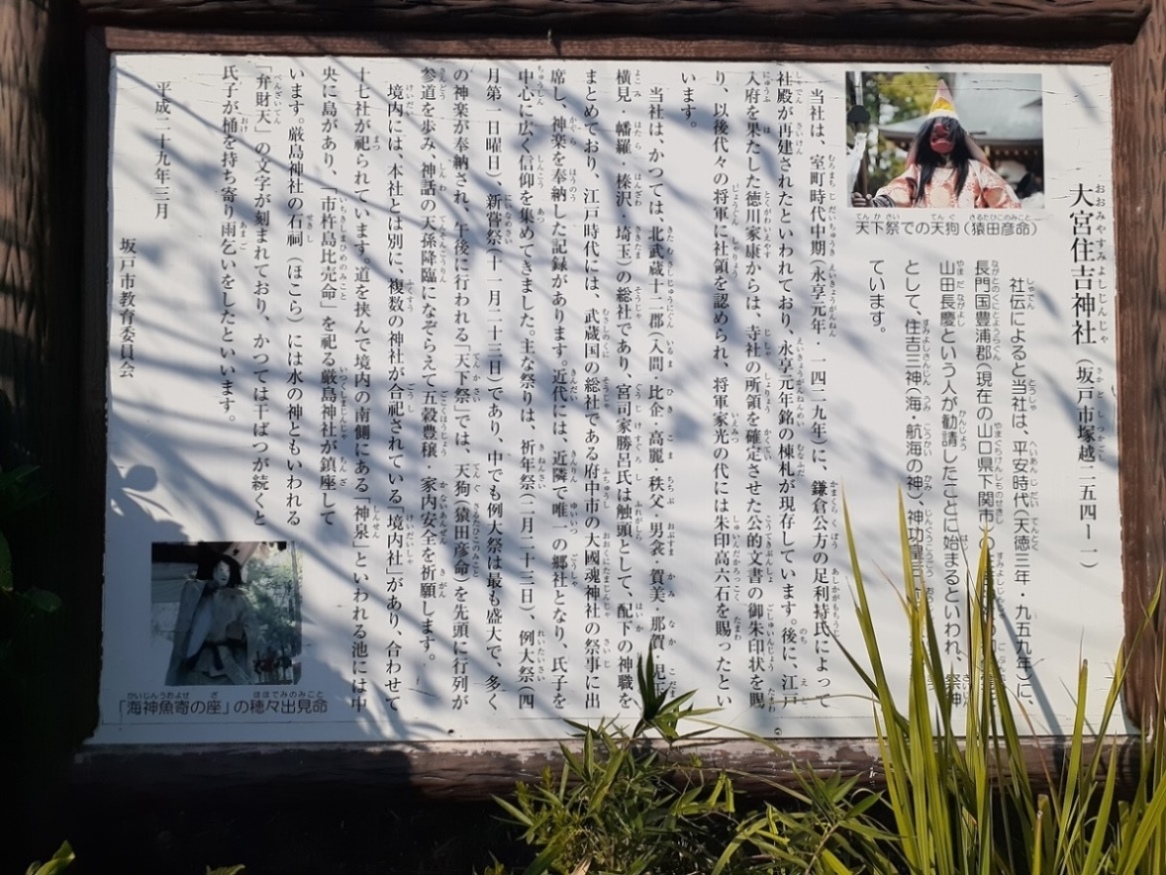 大宮住吉神社（坂戸市塚越二五四ー一）
社伝によると当社は、平安時代（天徳三年・九五九年）に、
長門国豊浦郡（現在の山口県下関市）の
山田長慶という人が勧請したことに始まるといわれ、祭神
として、住吉三神（海・航海の神）、神功皇
ています。
天下祭での天狗（猿田彦命）
当社は、室町時代中期（永享元年・一四二九年）に、鎌倉公方の足利持氏によって
社殿が再建されたといわれており、永享元年銘の棟札が現存しています。後に、江戸
入府を果たした徳川家康からは、寺社の所領を確定させた公的文書の御朱印状を賜
り、以後代々の将軍に社領を認められ、将軍家光の代には朱印高六石を賜ったとい
います。
当社は、かつては、北武蔵十二郡（入間・比企・高麗・秩父・男衾・賀美・那賀・児玉・
横見・幡羅・榛沢・埼玉）の総社であり、宮司家勝呂氏は触頭として、配下の神職を
まとめており、江戸時代には、武蔵国の総社である府中市の大國魂神社の祭事に出
席し、神楽を奉納した記録があります。近代には、近隣で唯一の郷社となり、氏子を
中心に広く信仰を集めてきました。主な祭りは、祈年祭（二月二十三日）、例大祭（四
月第一日曜日）、新嘗祭（十一月二十三日）であり、中でも例大祭は最も盛大で、多く
の神楽が奉納され、午後に行われる「天下祭」では、天狗（猿田彦命）を先頭に行列が
参道を歩み、神話の天孫降臨になぞらえて五穀豊穣・家内安全を祈願します。
境内には、本社とは別に、複数の神社が合祀されている「境内社」があり、合わせて
十七社が祀られています。道を挟んで境内の南側にある「神泉」といわれる池には中
央に島があり、「市杵島比売命」を祀る厳島神社が鎮座して
います。厳島神社の石祠（ほこら）には水の神ともいわれる
「弁財天」の文字が刻まれており、かつては干ばつが続くと
氏子が桶を持ち寄り雨乞いをしたといいます。
平成二十九年三月
坂戸市教育委員会
「海神魚寄の座」の穂々出見命